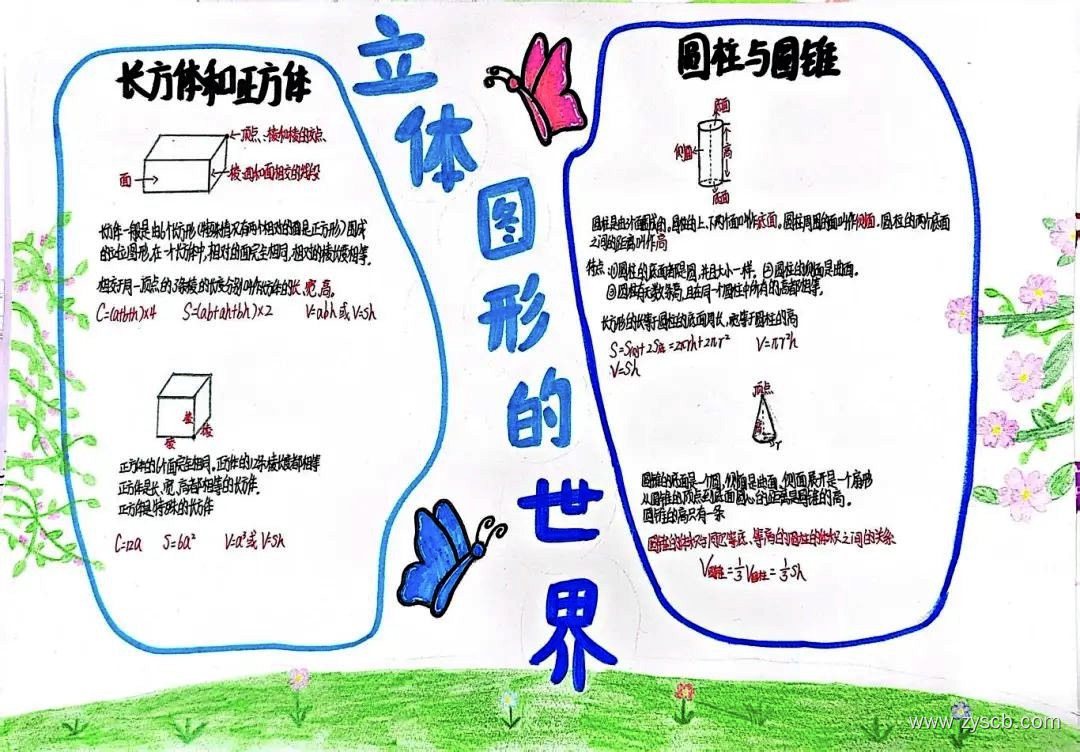 立体图形的世界
长方体和正方体
顶点、棱和棱的交点
面
棱:面和面相交的线段
长方体一般是由6个长方形(特殊情况有两个相对的面是正方形)围成
的立体图形,在一个长方体中,相对的面完全相同,相对的棱长度相等。
相交于同一顶点的3条棱的长度分别叫作长方体的长、宽、高。
C=(a+b+h)×4 S=(ab+ah+bh)×2 V=abh或V=Sh
棱
棱 棱
正方体的6个面完全相同。正方体的12条棱长度都相等
正方体是长、宽、高都相等的长方体。
正方体是特殊的长方体
C=12a S=6a² V=a³或V=Sh
圆柱与圆锥
底面
侧面
高
底面
圆柱是由3个面围成的。圆柱的上、下两个面叫作底面。圆柱周围的面叫作侧面。圆柱的两个底面
之间的距离叫作高
特点:①圆柱的底面都是圆,并且大小一样。②圆柱的侧面是曲面。
③圆柱有无数条高,且在同一个圆柱中所有的高都相等。
长方形的长等于圆柱的底面周长,宽等于圆柱的高
S=S侧+2S底=2πrh+2πr² V=πr²h
V=Sh
顶点
高
r
圆锥的底面是一个圆,侧面是曲面,侧面展开是一个扇形
从圆锥的顶点到底面圆心的距离是圆锥的高。
圆锥的高只有一条
圆锥的体积与同它等底、等高的圆柱的体积之间的关系
V圆锥=⅓V圆柱=⅓Sh
www.zyscb.com